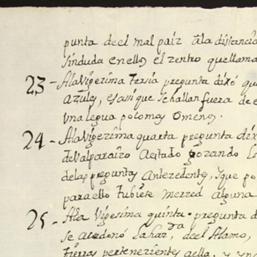 punta de el mal pais a la distancia
sinduda en ello el zentro que llama
23 - A la Vigezima tersia pregunta dixo qu
Azules, es asi que se hallan fuera de e
Una legua poco mas o menos.
24 - A la Vigezima quarta pregunta dix
de Valparaizo A estado gozando lo
de las preguntas Antezedentes, y que po
para ello tubiese merced alguna
25 - A la Vigesima quinta pregunta d
se de el Alamo,
tierras pertenezientes a ella, y un